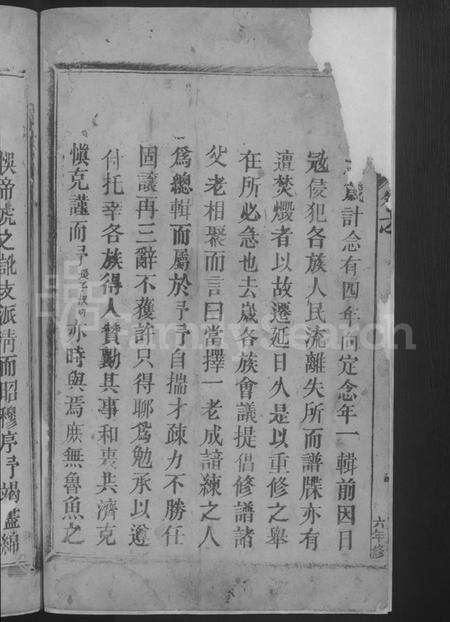 歲計念有四年向定念年一輯前因日
寇侵犯各族人民流離失所而譜牒亦有
遭焚燬者以故遷延日久是以重修之舉
在所必急也去歲各族會議提倡修譜諸
父老相聚而言曰當擇一老成諳練之人
為總輯而屬於予予自揣才疎力不勝任
固讓再三辭不獲許只得聊為勉承以遵
付托幸各族得人贊勷其事和衷共濟克
慎克謹而予亦時與焉庶無魯魚之
悞帝虎之訛支派清而昭穆序予竭盡綿
六年修